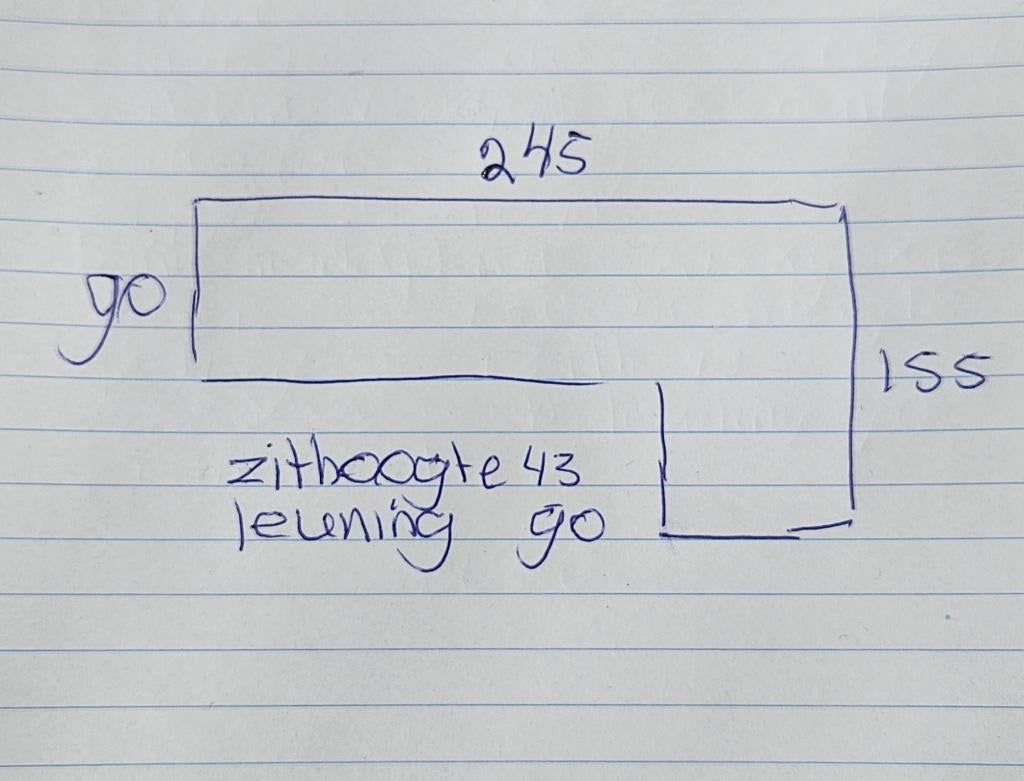 245
90
155
zithoogte 43
leuning 90